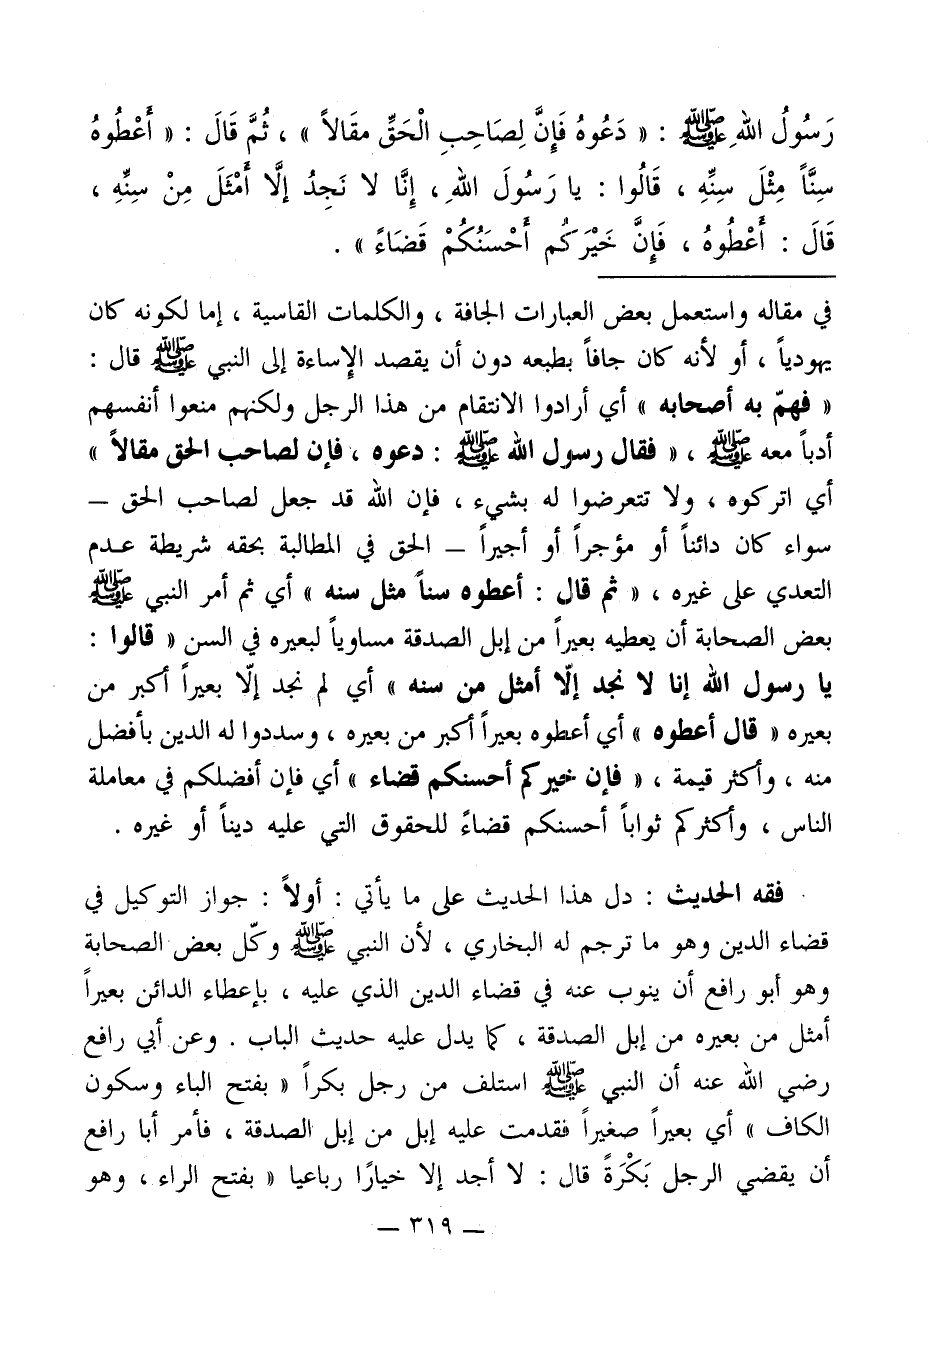 رَسُولُ اللهِ ﷺ : « دَعُوهُ فَإِنَّ لِصَاحِبِ الْحَقِّ مقَالاً » ، ثُمَّ قَالَ : « أَعْطُوهُ
سِنَّاً مِثْلَ سِنِّهِ ، قَالُوا : يا رَسُولَ اللهِ ، إِنَّا لا نَجِدُ إلَّا أَمْثَلَ مِنْ سِنِّهِ ،
قَالَ : أَعْطُوهُ ، فَإِنَّ خَيْرَكُم أَحْسَنُكُمْ قَضَاءً » .
في مقاله واستعمل بعض العبارات الجافة ، والكلمات القاسية ، إما لكونه كان
يهودياً ، أو لأنه كان جافاً بطبعه دون أن يقصد الإساءة إلى النبي ﷺ قال :
« فهمّ به أصحابه » أي أرادوا الانتقام من هذا الرجل ولكنهم منعوا أنفسهم
أدباً معه ﷺ ، « فقال رسول الله ﷺ : دعوه ، فإن لصاحب الحق مقالاً »
أي اتركوه ، ولا تتعرضوا له بشيء ، فإن الله قد جعل لصاحب الحق –
سواء كان دائناً أو مؤجراً أو أجيراً – الحق في المطالبة بحقه شريطة عدم
التعدي على غيره ، « ثم قال : أعطوه سناً مثل سنه » أي ثم أمر النبي ﷺ
بعض الصحابة أن يعطيه بعيراً من إبل الصدقة مساوياً لبعيره في السن « قالوا :
يا رسول الله إنا لا نجد إلّا أمثل من سنه » أي لم نجد إلّا بعيراً أكبر من
بعيره « قال أعطوه » أي أعطوه بعيراً أكبر من بعيره ، وسددوا له الدين بأفضل
منه ، وأكثر قيمة ، « فإن خيركم أحسنكم قضاء » أي فإن أفضلكم في معاملة
الناس ، وأكثركم ثواباً أحسنكم قضاءً للحقوق التي عليه ديناً أو غيره .
فقه الحديث : دل هذا الحديث على ما يأتي : أولاً : جواز التوكيل في
قضاء الدين وهو ما ترجم له البخاري ، لأن النبي ﷺ وكّل بعض الصحابة
وهو أبو رافع أن ينوب عنه في قضاء الدين الذي عليه ، بإعطاء الدائن بعيراً
أمثل من بعيره من إبل الصدقة ، كما يدل عليه حديث الباب . وعن أبي رافع
رضي الله عنه أن النبي ﷺ استلف من رجل بكراً « بفتح الباء وسكون
الكاف » أي بعيراً صغيراً فقدمت عليه إبل من إبل الصدقة ، فأمر أبا رافع
أن يقضي الرجل بَكْرَةً قال : لا أجد إلا خيارًا رباعيا « بفتح الراء ، وهو
– ٣١٩ –